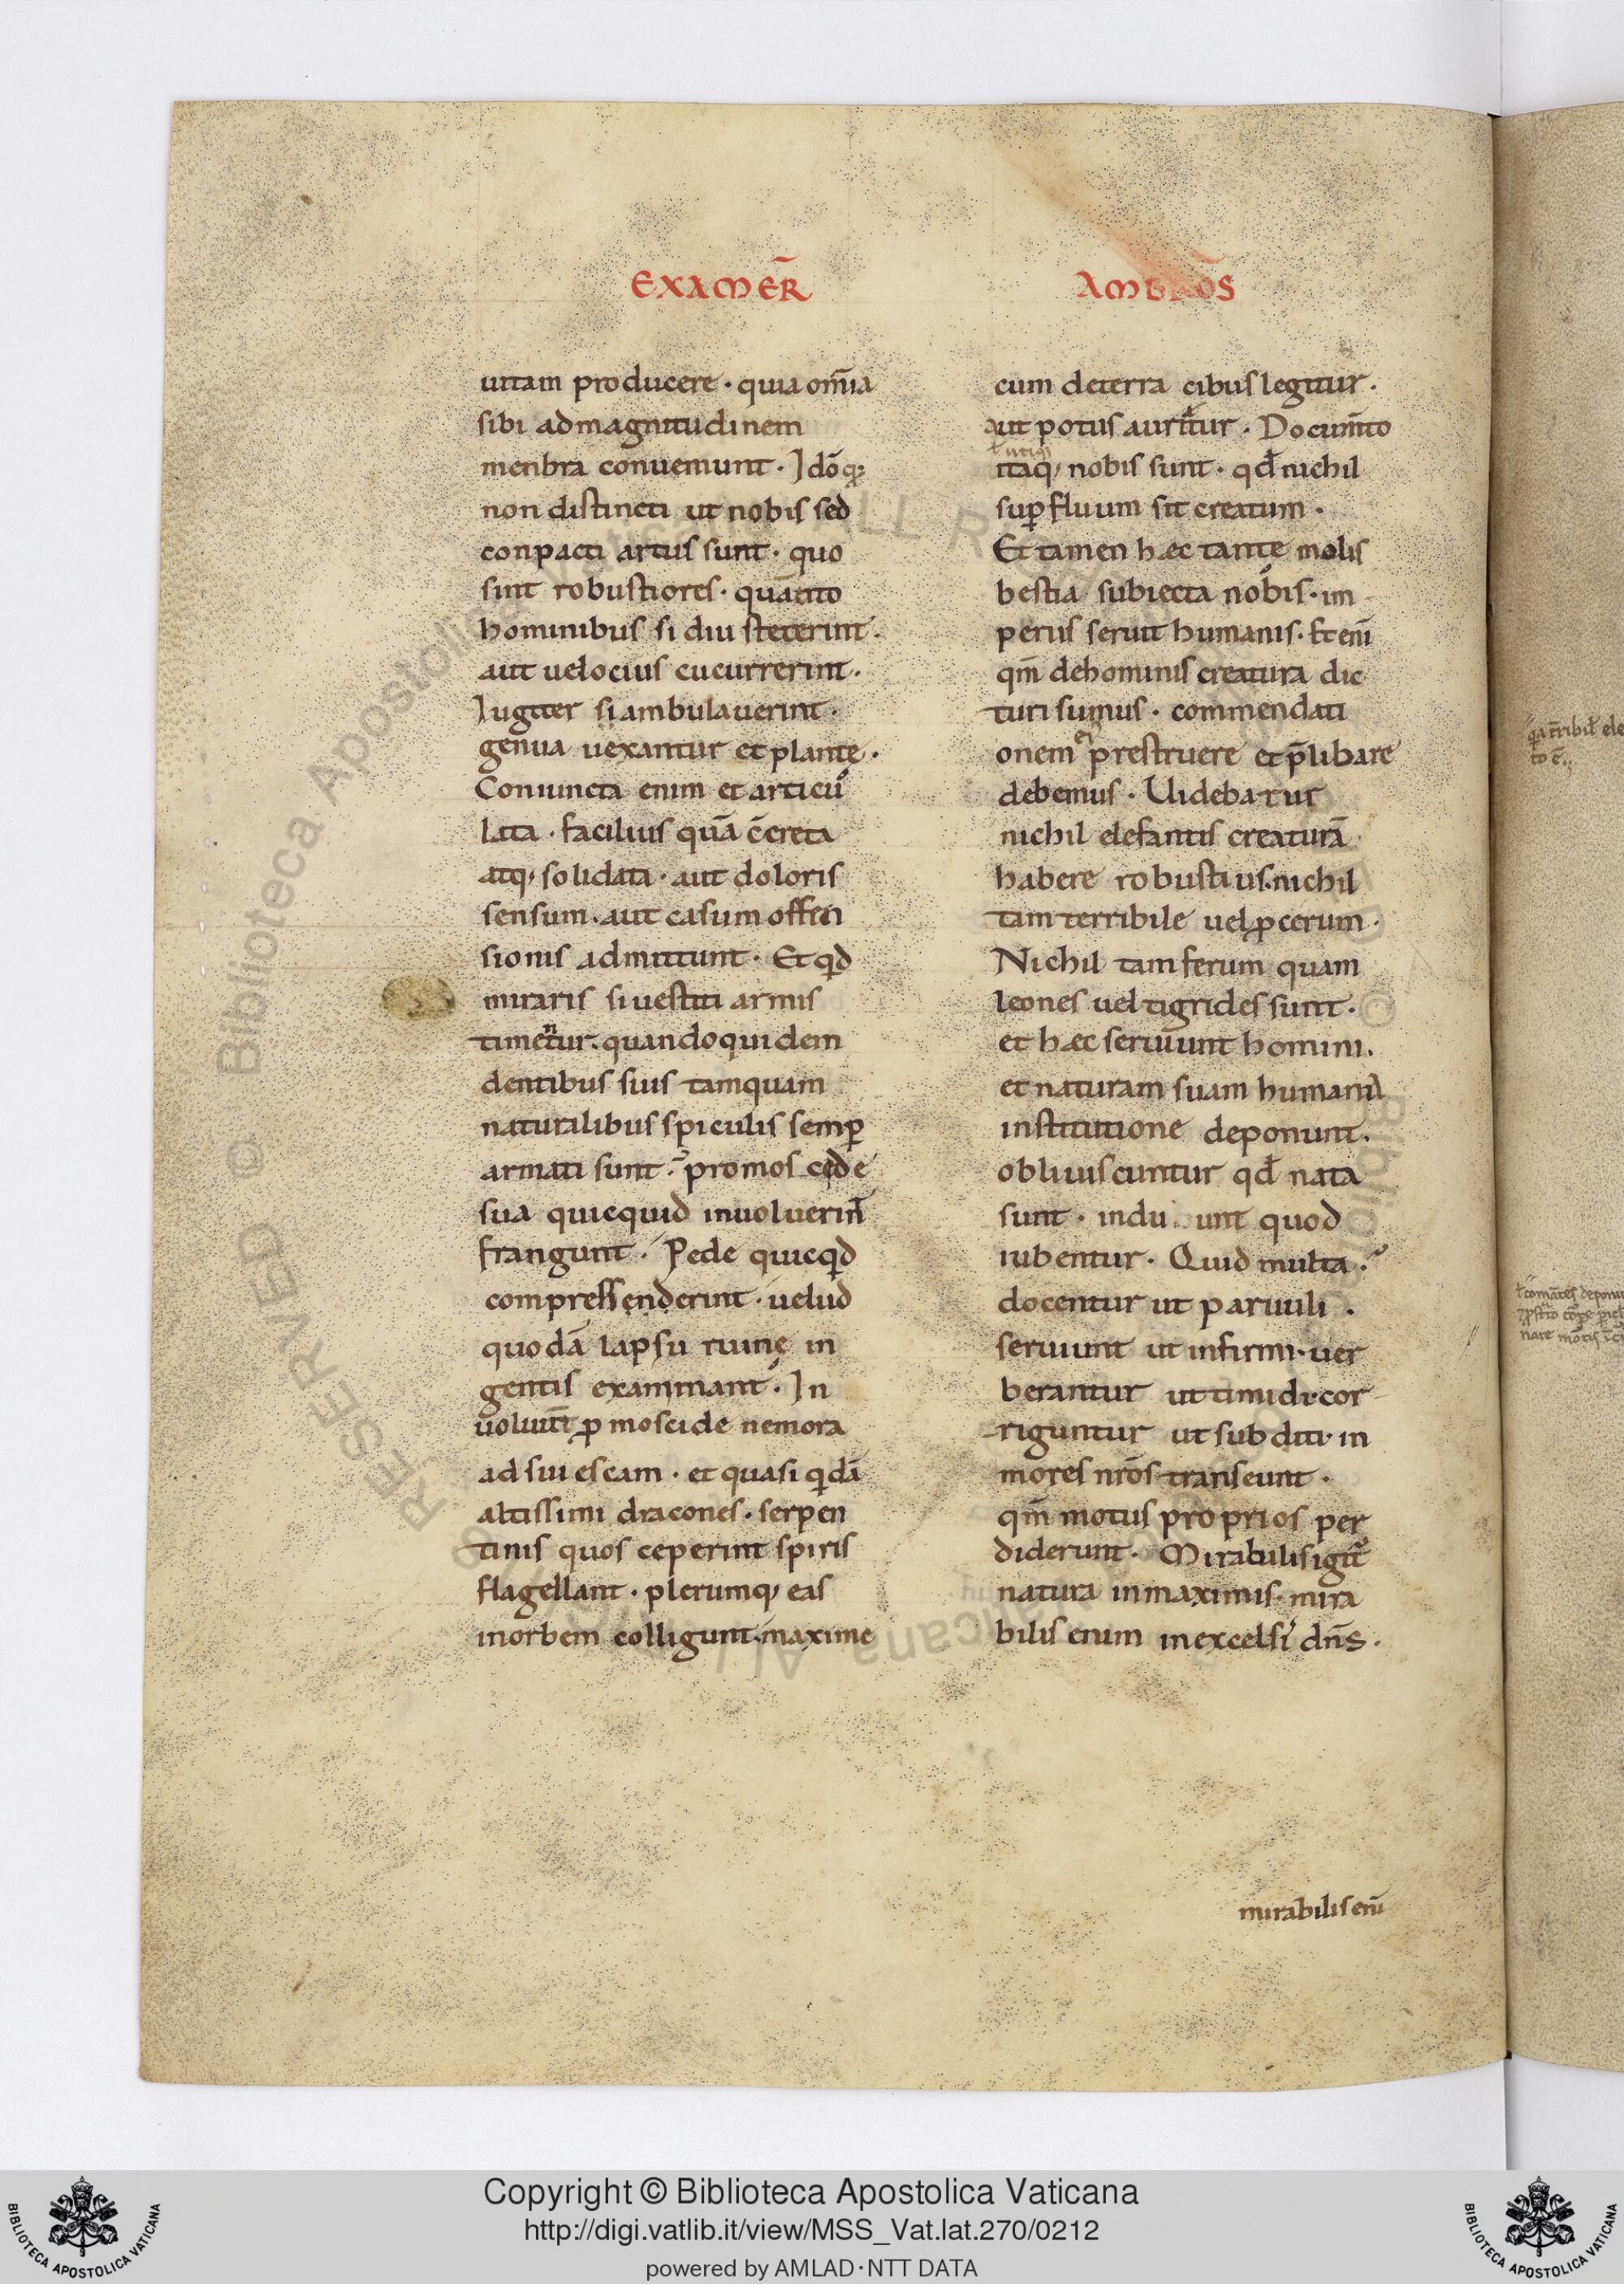 EXAMER̄
uitam producere · quia om̄ia
sibi ad magnitudinem
menbra conueniunt · Idōq;
non distincti ut nobis sed
conpacti artus sunt · quo
sint robustiores · quanto
hominibus si diu steterint ·
aut uelocius cucurrerint ·
Iugiter si ambulauerint ·
genua uexantur et plantę ·
Coniuncta enim et articu
lata · facilius quā c̄creta
atq; solidata · aut doloris
sensum · aut casum offen
sionis admittunt · Et qd
miraris si uestiti armis
timentur · quandoquidem
dentibus suis tamquam
naturalibus spiculis semꝑ
armati sunt · promoscede
sua quicquid inuoluerint
frangunt · Pede quicqd
comprehenderint · uelud
quodā lapsu ruinę in
gentis exaninant · In
uoluūt ꝓmoscide nemora
ad sui escam · et quasi qdā
altissimi dracones · serpen
tinis quos ceperint spiris
flagellant · plerumq; eas
in orbem colligunt · maxime
AMBROS̄
cum de terra cibus legitur ·
aut potus auritur · Docum̄to
itaq; nobis sunt · qđ nichil
suꝑfluum sit creatum ·
Et tamen hæc tantę molis
bestia subiecta nobis · im
periis seruit humanis · Et eni̅
qm̄ de hominis creatura dic
turi sumus · commendati
onem ei̅ prestruere et p̄libare
debemus · Uidebatur
nichil elefantis creaturā
habere robustius · nichil
tam terribile uel ꝓcerum ·
Nichil tam ferum quam
leones uel tigrides sunt ·
et hæc seruiunt homini ·
et naturam suam humana
institutione deponunt ·
obliuiscuntur qđ nata
sunt · indu unt quod
iubentur · Quid multa ·
docentur ut paruuli ·
seruiunt ut infirmi · uer
berantur ut timidi · cor
riguntur ut subditi · in
mores nrōs transeunt ·
qm̄ motus proprios per
diderunt · Mirabilis igit̄
natura in maximis · mira
bilis enim in excelsis dn̄s ·
mirabilis eni̅
Copyright © Biblioteca Apostolica Vaticana
http://digi.vatlib.it/view/MSS_Vat.lat.270/0212
powered by AMLAD · NTT DATA
BIBLIOTECA APOSTOLICA VATICANA
BIBLIOTECA APOSTOLICA VATICANA